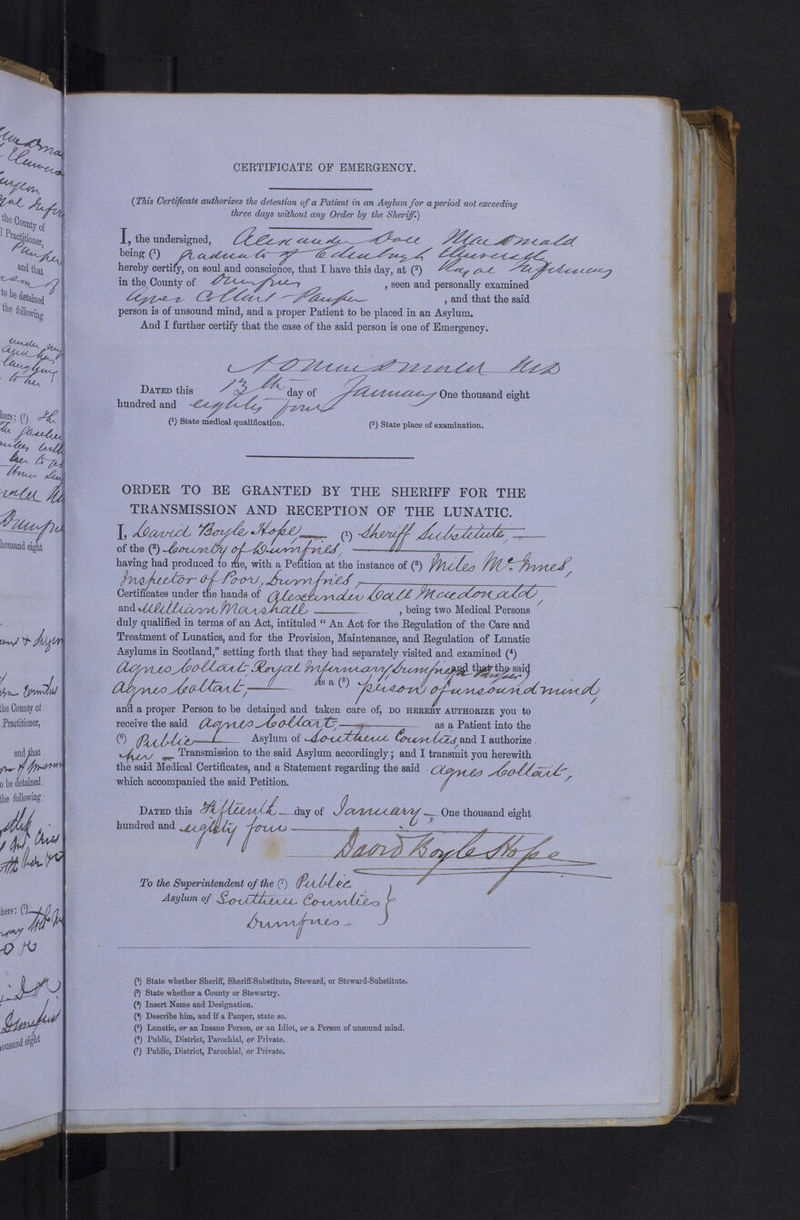 CERTIFICATE OF EMERGENCY.
(This Certificate authorizes the detention of a Patient in an Asylum for a period not exceeding
three days without any Order by the Sheriff.)
I, the undersigned, Alexander Dall Macdonald
being (¹) Graduate of Edinburgh University
hereby certify, on soul and conscience, that I have this day, at (²) Royal Infirmary
in the County of Dumfries , seen and personally examined
Agnes Coltart Pauper , and that the said
person is of unsound mind, and a proper Patient to be placed in an Asylum.
And I further certify that the case of the said person is one of Emergency.
A D Macdonald MD
DATED this 13th day of January One thousand eight
hundred and eighty four
(¹) State medical qualification. (²) State place of examination.
ORDER TO BE GRANTED BY THE SHERIFF FOR THE
TRANSMISSION AND RECEPTION OF THE LUNATIC.
I, David Boyle Hope (¹) Sheriff Substitute,
of the (²) County of Dumfries,
having had produced to me, with a Petition at the instance of (³) Miles McInnes,
Inspector of Poor, Dumfries,
Certificates under the hands of Alexander Dall Macdonald,
and William Marshall , being two Medical Persons
duly qualified in terms of an Act, intituled “ An Act for the Regulation of the Care and
Treatment of Lunatics, and for the Provision, Maintenance, and Regulation of Lunatic
Asylums in Scotland,” setting forth that they had separately visited and examined (⁴)
Agnes Coltart Royal Infirmary, Dumfries Pauper, and that the said
Agnes Coltart, is a (⁵) person of unsound mind,
and a proper Person to be detained and taken care of, DO HEREBY AUTHORIZE you to
receive the said Agnes Coltart, as a Patient into the
(⁶) Public Asylum of Southern Counties, and I authorize
her Transmission to the said Asylum accordingly; and I transmit you herewith
the said Medical Certificates, and a Statement regarding the said Agnes Coltart,
which accompanied the said Petition.
DATED this Fifteenth day of January One thousand eight
hundred and eighty four
David Boyle Hope
To the Superintendent of the (⁷) Public
Asylum of Southern Counties
Dumfries
(¹) State whether Sheriff, Sheriff-Substitute, Steward, or Steward-Substitute.
(²) State whether a County or Stewartry.
(³) Insert Name and Designation.
(⁴) Describe him, and if a Pauper, state so.
(⁵) Lunatic, or an Insane Person, or an Idiot, or a Person of unsound mind.
(⁶) Public, District, Parochial, or Private.
(⁷) Public, District, Parochial, or Private.
the County of
Practitioner,
and that
to be detained
the following
hers: (¹)
housand eight
the County of
Practitioner,
and that
o be detained
the following
hers: (¹)
ousand eight